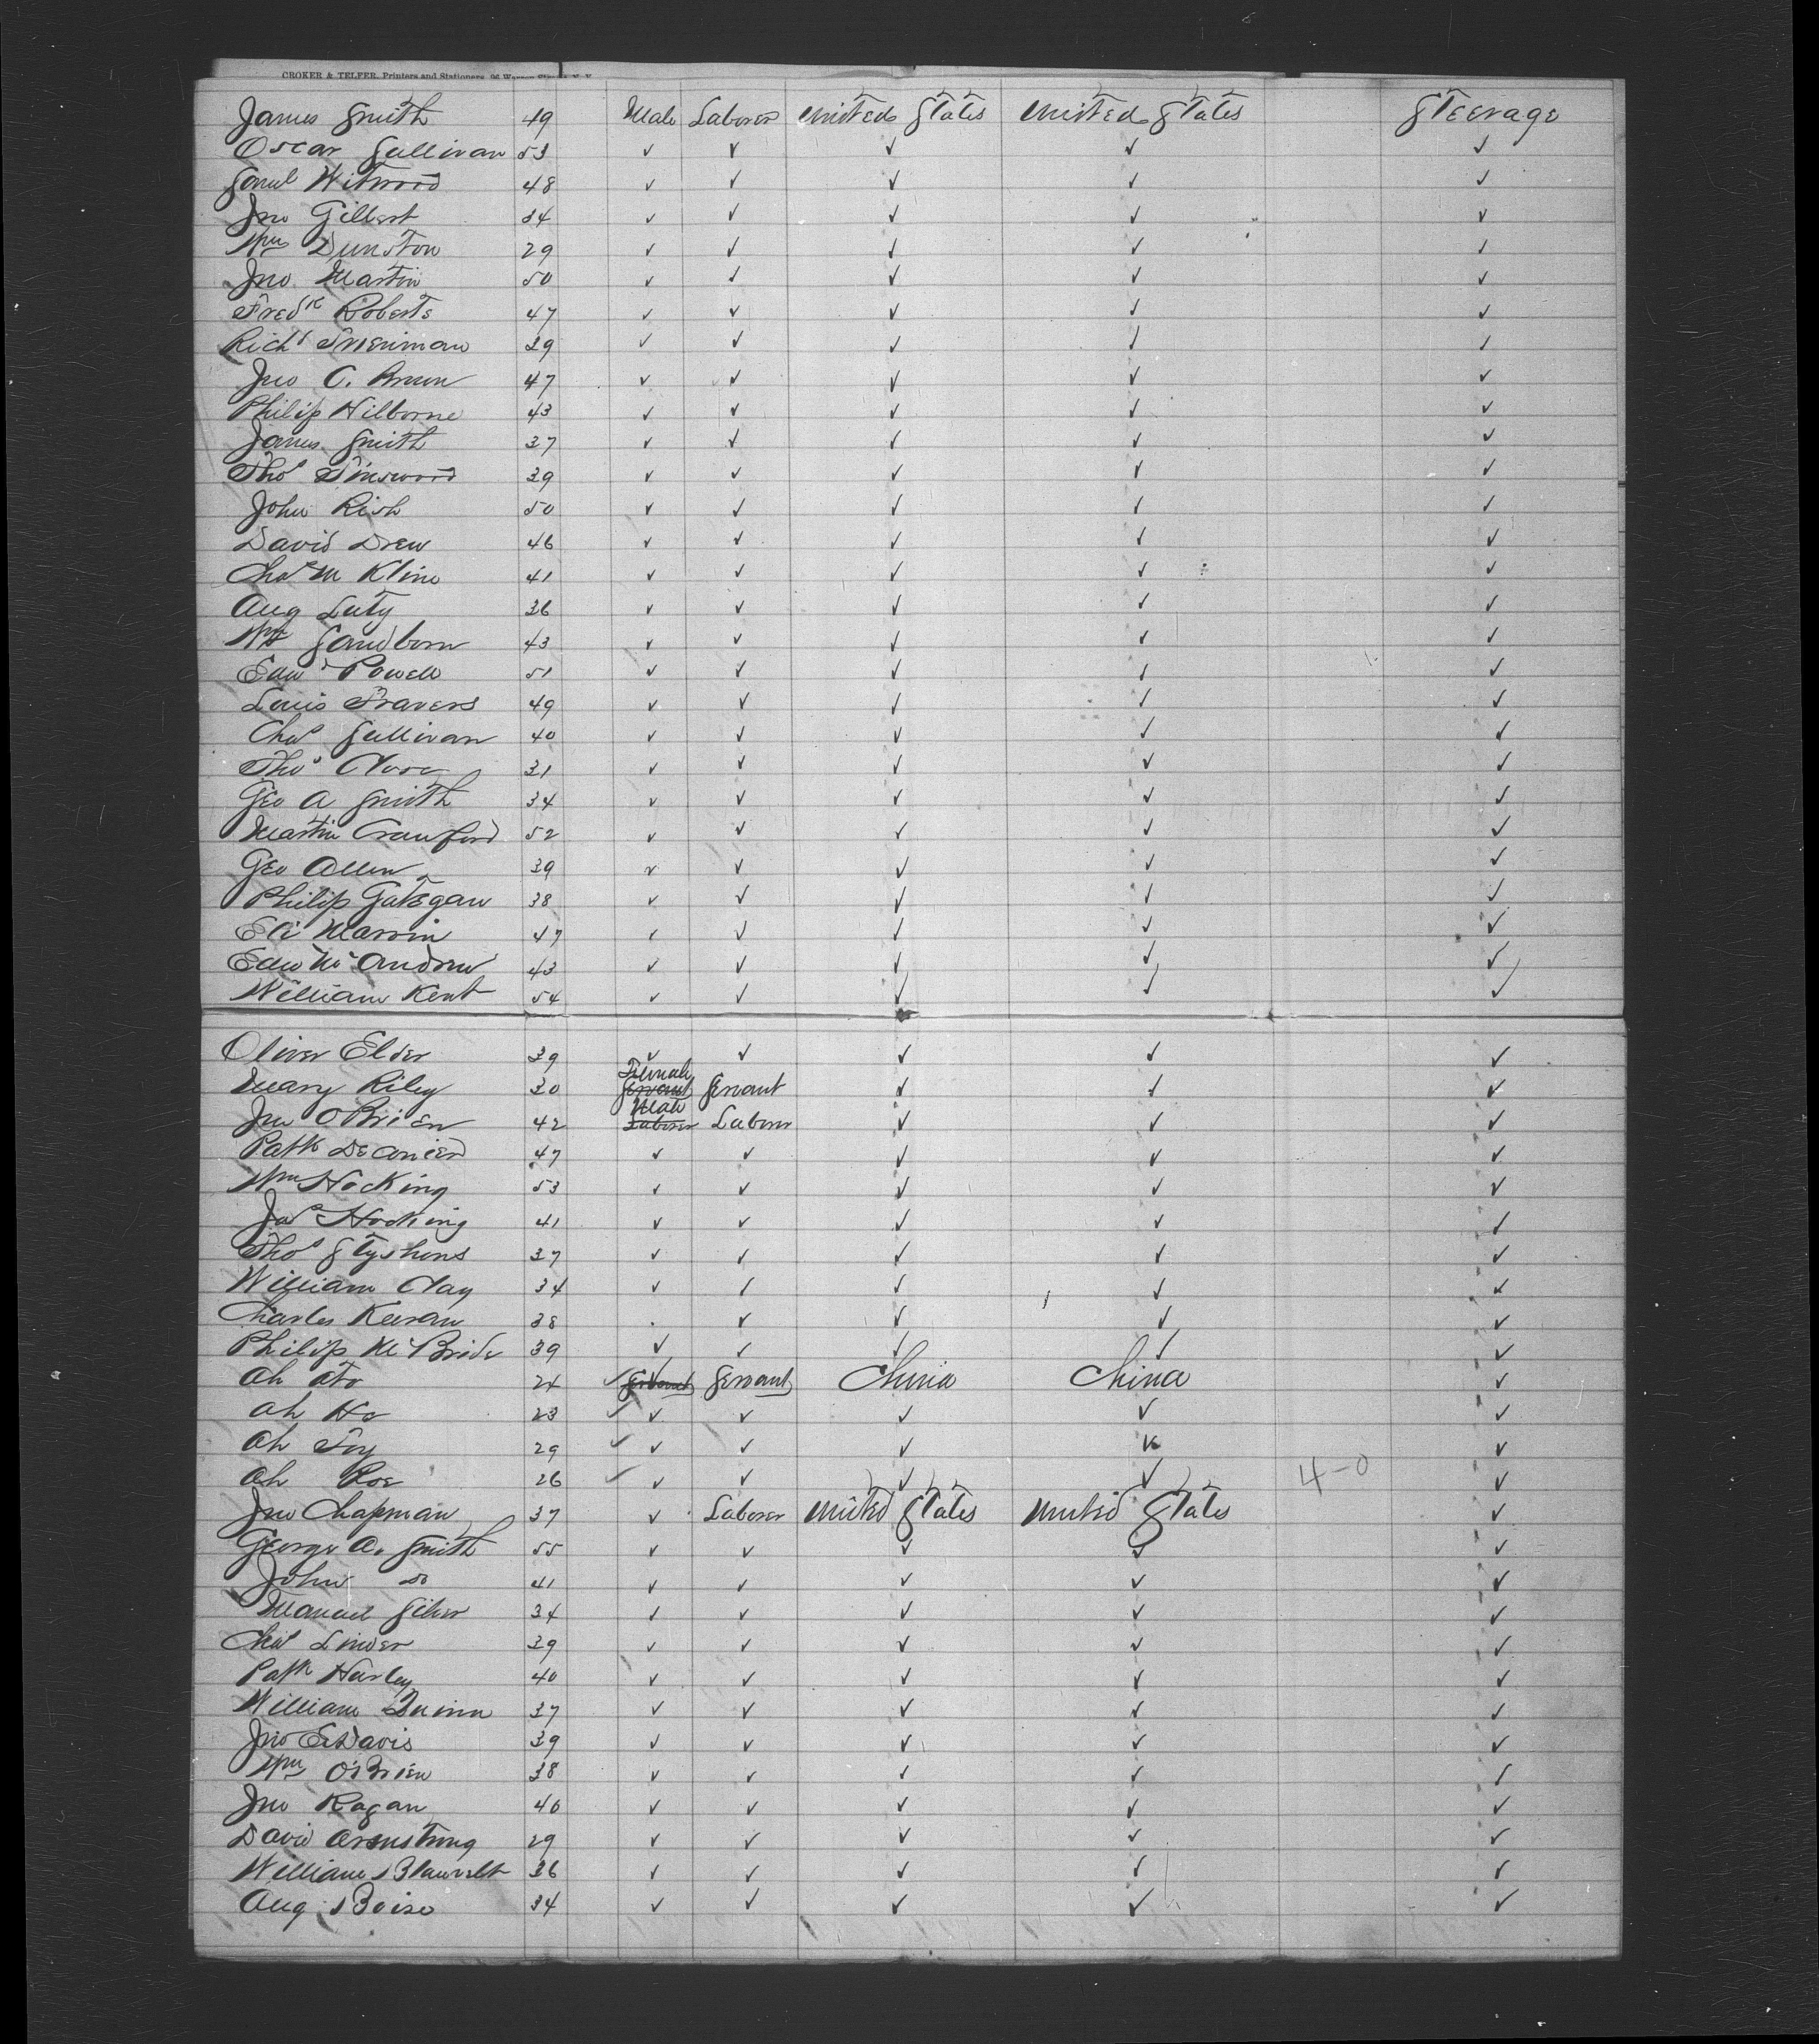 CROKER & TELFER, Printers and Stationers, 96 Warren Street, N. Y.
James Smith 49 Male Laborer United States United States Steerage
Oscar Sullivan 53 ✓ ✓ ✓ ✓ ✓
Saml Witwood 48 ✓ ✓ ✓ ✓ ✓
Jno Gilbert 34 ✓ ✓ ✓ ✓ ✓
Wm Dunston 29 ✓ ✓ ✓ ✓ ✓
Jno Martin 50 ✓ ✓ ✓ ✓ ✓
Fredk Roberts 47 ✓ ✓ ✓ ✓ ✓
Richd 39 ✓ ✓ ✓ ✓ ✓
Jno C. Brown 47 ✓ ✓ ✓ ✓ ✓
Philip Hilborne 43 ✓ ✓ ✓ ✓ ✓
James Smith 37 ✓ ✓ ✓ ✓ ✓
Thos Tinswood 39 ✓ ✓ ✓ ✓ ✓
John Rish 50 ✓ ✓ ✓ ✓ ✓
David Drew 46 ✓ ✓ ✓ ✓ ✓
Chas M Kline 41 ✓ ✓ ✓ ✓ ✓
Aug Luty 36 ✓ ✓ ✓ ✓ ✓
Wm Sandborn 43 ✓ ✓ ✓ ✓ ✓
Edwd Powell 51 ✓ ✓ ✓ ✓ ✓
Louis Travers 49 ✓ ✓ ✓ ✓ ✓
Chas Sullivan 40 ✓ ✓ ✓ ✓ ✓
Thos 31 ✓ ✓ ✓ ✓ ✓
Geo A Smith 34 ✓ ✓ ✓ ✓ ✓
Martin Crawford 52 ✓ ✓ ✓ ✓ ✓
Geo Allen 39 ✓ ✓ ✓ ✓ ✓
Philip Gategan 38 ✓ ✓ ✓ ✓ ✓
Eli Marvin 47 ✓ ✓ ✓ ✓ ✓
Edw McAndrew 43 ✓ ✓ ✓ ✓ ✓
William Kent 54 ✓ ✓ ✓ ✓ ✓
Oliver Elder 39 ✓ ✓ ✓ ✓ ✓
Mary Riley 30 Female Servant Servant ✓ ✓ ✓
Jno OBrien 42 Male Laborer Laborer ✓ ✓ ✓
Patk 47 ✓ ✓ ✓ ✓ ✓
Wm Hocking 53 ✓ ✓ ✓ ✓ ✓
Jas Hocking 41 ✓ ✓ ✓ ✓ ✓
Thos Styshens 37 ✓ ✓ ✓ ✓ ✓
William Clay 34 ✓ ✓ ✓ ✓ ✓
Charles Keeran 38 ✓ ✓ ✓ ✓
Philip McBride 39 ✓ ✓ ✓ ✓ ✓
Ah Ato 24 ✓ Servant Servant China China ✓
Ah Ho 23 ✓ ✓ ✓ ✓ ✓ ✓
Ah Toy 29 ✓ ✓ ✓ ✓ ✓ ✓
Ah 26 ✓ ✓ ✓ ✓ ✓ 4-0 ✓
Jno Chapman 37 ✓ Laborer United States United States ✓
George A. Smith 55 ✓ ✓ ✓ ✓ ✓
John Do 41 ✓ ✓ ✓ ✓ ✓
Manuel Silver 34 ✓ ✓ ✓ ✓ ✓
Chas Linder 39 ✓ ✓ ✓ ✓ ✓
Patk Hurley 40 ✓ ✓ ✓ ✓ ✓
William Quinn 37 ✓ ✓ ✓ ✓ ✓
Jno E Davis 39 ✓ ✓ ✓ ✓ ✓
Wm O'Brien 38 ✓ ✓ ✓ ✓ ✓
Jno Ragan 40 ✓ ✓ ✓ ✓ ✓
David Armstrong 29 ✓ ✓ ✓ ✓ ✓
William Blauvelt 36 ✓ ✓ ✓ ✓ ✓
Aug Boise 34 ✓ ✓ ✓ ✓ ✓